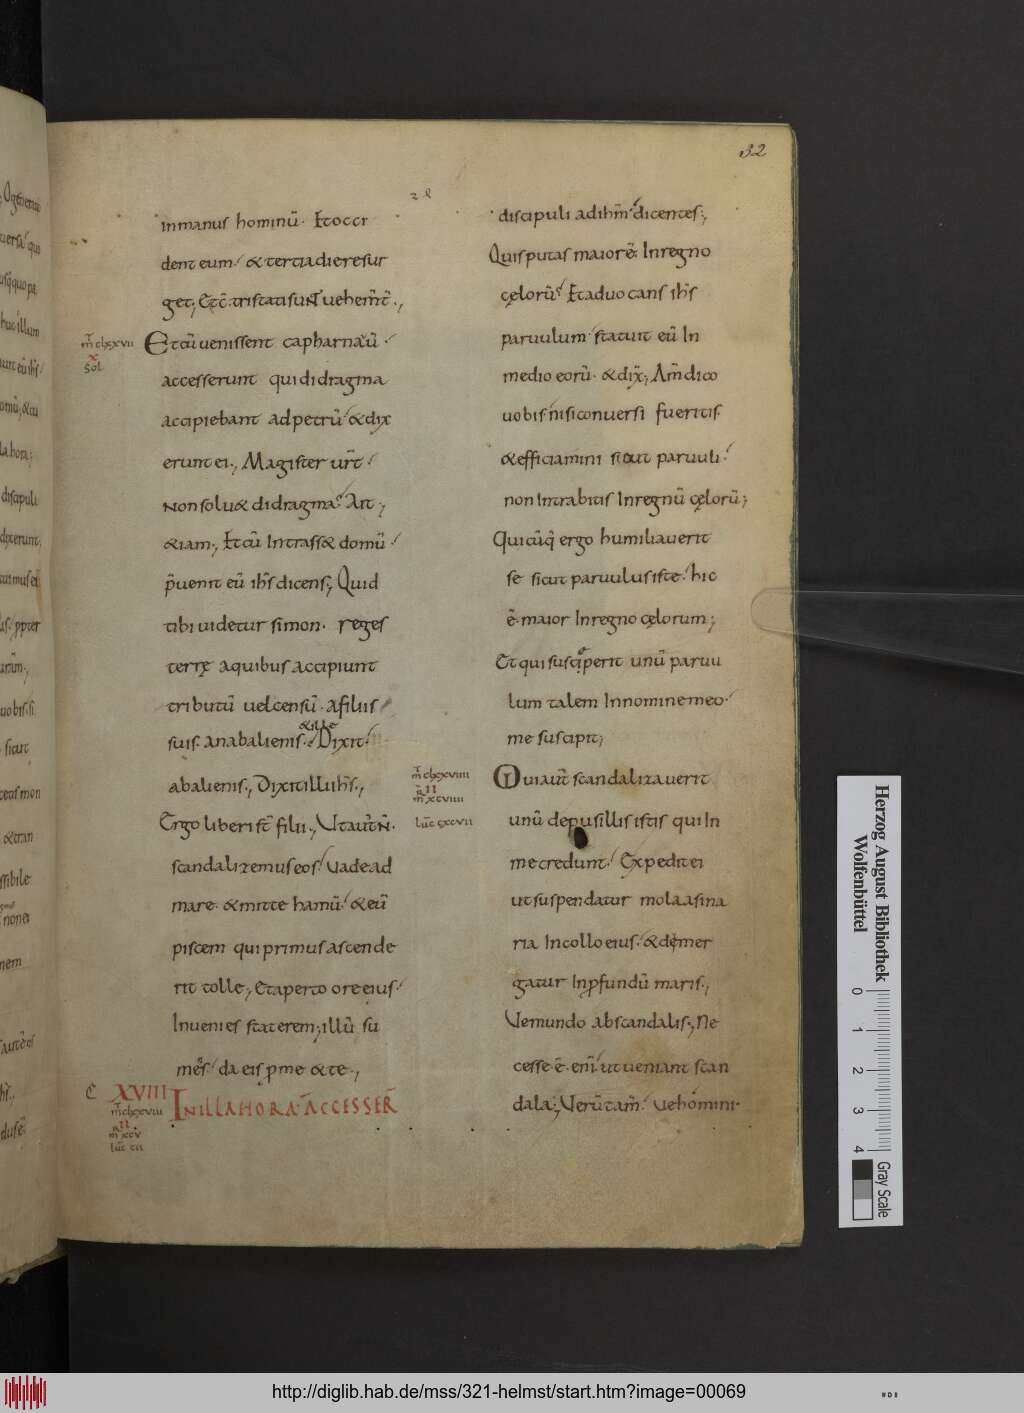 32
in manus hominū. Et occi
dent eum. & tertia die resur
get; Et c̄tristati sunt vehem̄t̄.,
Et cū venissent capharnaū.
accesserunt qui didragma
accipiebant ad petrū. & dix
erunt ei., Magister ur̄t
non solu& didragma. Ait.,
&iam., Et cū Intrass& domū.
p̄uenit eū ih̄s dicens; Quid
tibi uidetur simon. reges
terrę a quibus accipiunt
tributū uel censū. A filiis
suis. an ab alienis. & ille Dixit.
ab alienis., Dixit illi ih̄s.,
Ergo liberi st̄ filii., Ut aut̄ n̄.
scandalizemus eos. Vade ad
mare. & mitte hamū. & eū
piscem qui primus ascende
rit tolle., Et aperto ore eius
Inuenies staterem; illū su
mens. da eis p me & te.,
C XVIII
IN ILLA HORA ACCESSER̄
discipuli ad ih̄m dicentes;,
Quis putas maior ē. In regno
cęlorū. Et aduocans ih̄s
paruulum statuit eū In
medio eorū. & dix̄; Am̄ dico
uobis nisi conuersi fueritis
& efficiamini sicut paruuli.
non Intrabitis In regnū cęlorū;
Quicūq; ergo humiliauerit
se sicut paruulus iste. hic
ē. maior In regno cęlorum;
Et qui susceperit unū paruu
lum talem In nomine meo.
me suscipit;
Qui aut̄ scandalizauerit
unū de pusillis istis qui In
me credunt. Expedit ei
ut suspendatur mola asina
ria In collo eius. & demer
gatur In pfundū maris.,
Ve mundo ab scandalis., Ne
cesse ē. eni ut ueniant scan
dala;, Verūtam̄. Ve homini.
Herzog August Bibliothek
Wolfenbüttel
0 1 2 3 4
Gray Scale
http://diglib.hab.de/mss/321-helmst/start.htm?image=00069